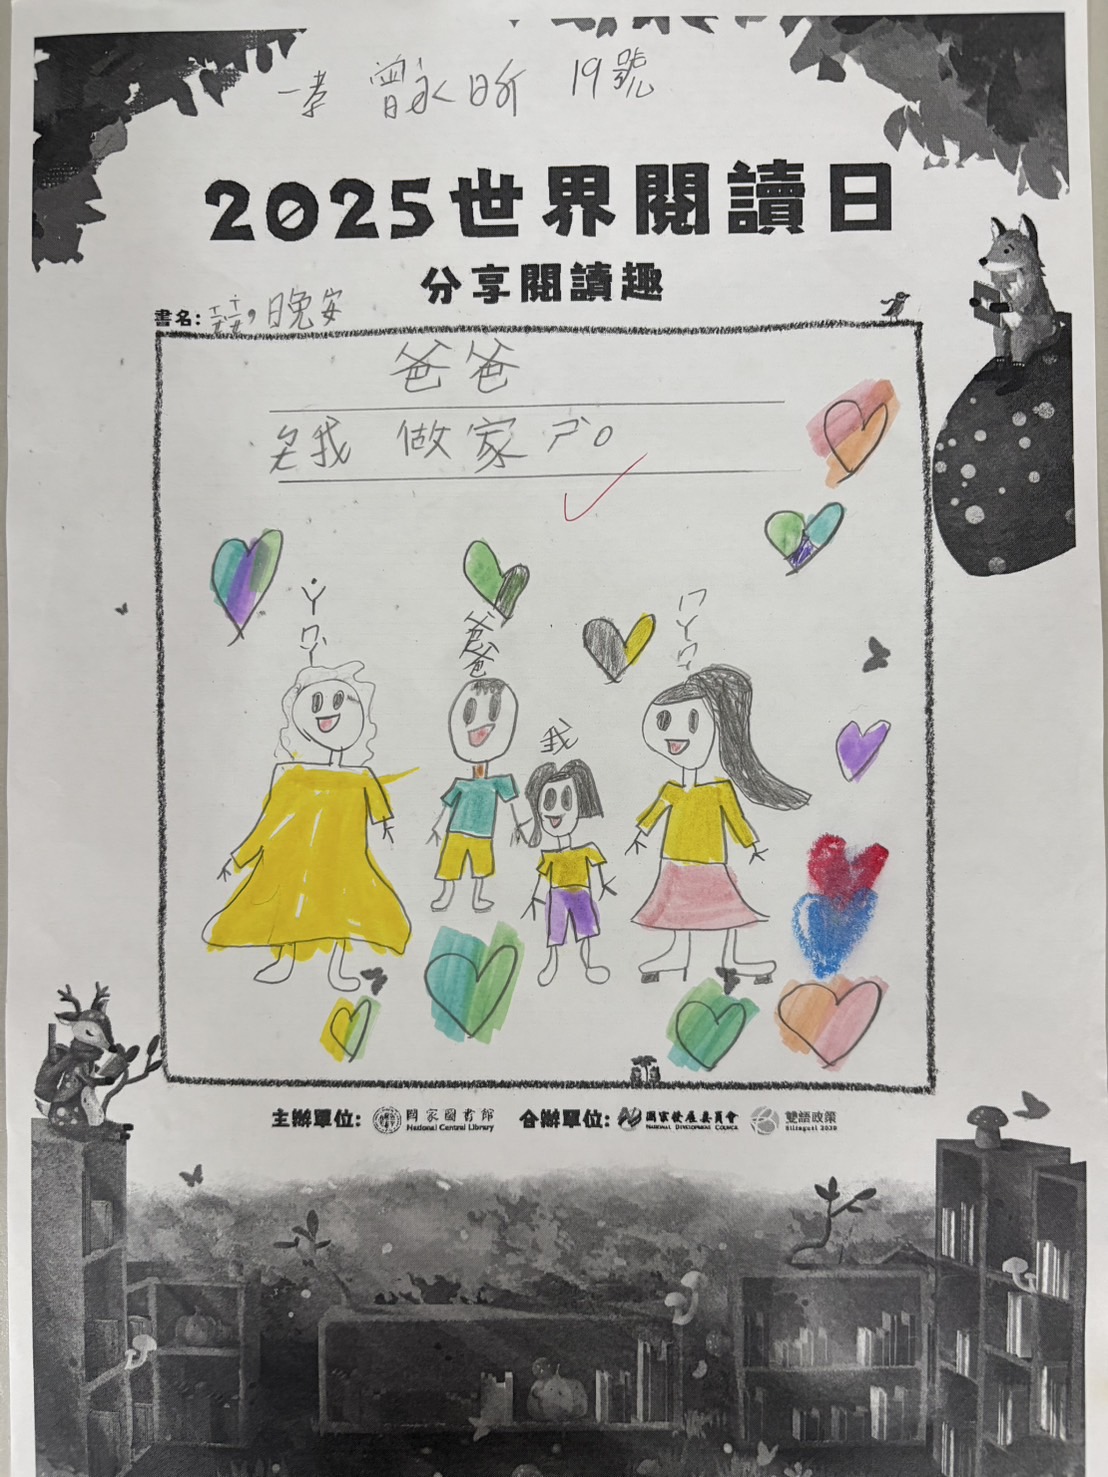 一孝 曾永昕 19號
2025世界閱讀日
分享閱讀趣
書名: ,晚安
爸爸
我 做家ㄕˋ。
爸爸
我
主辦單位: 國家圖書館 National Central Library 合辦單位: 國家發展委員會 National Development Council 雙語政策 Bilingual 2030